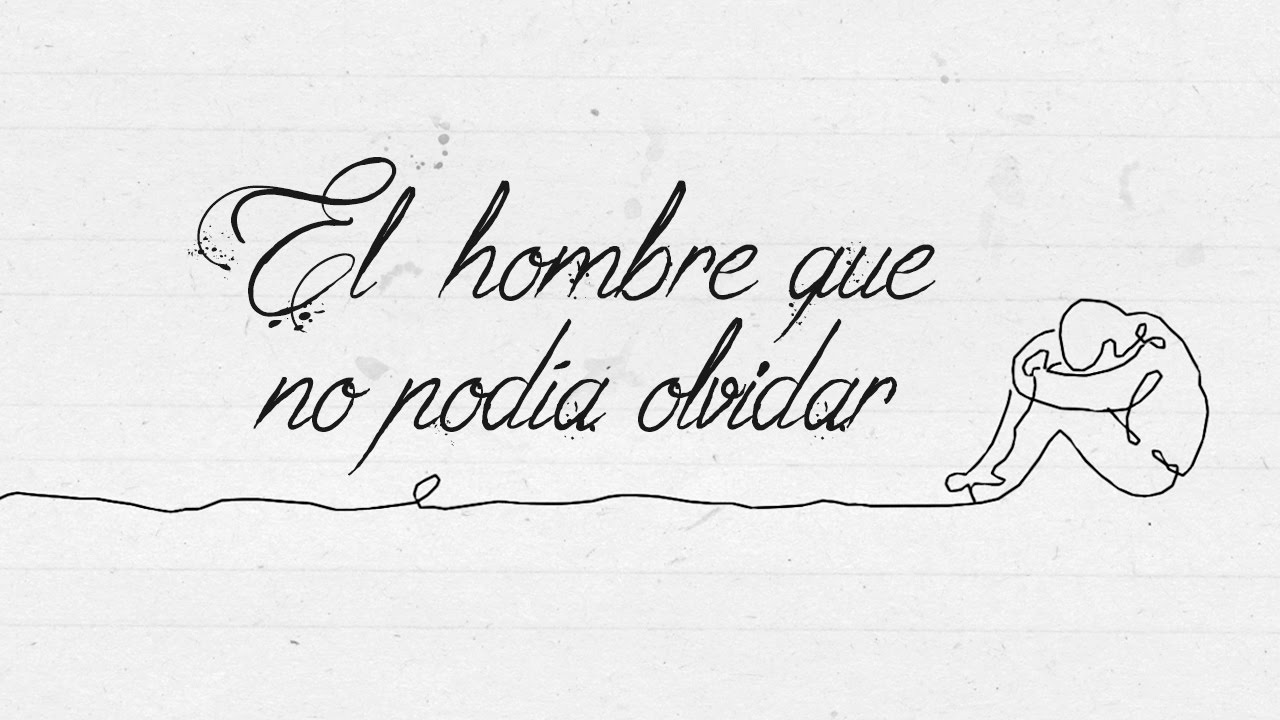 El hombre que
no podía olvidar